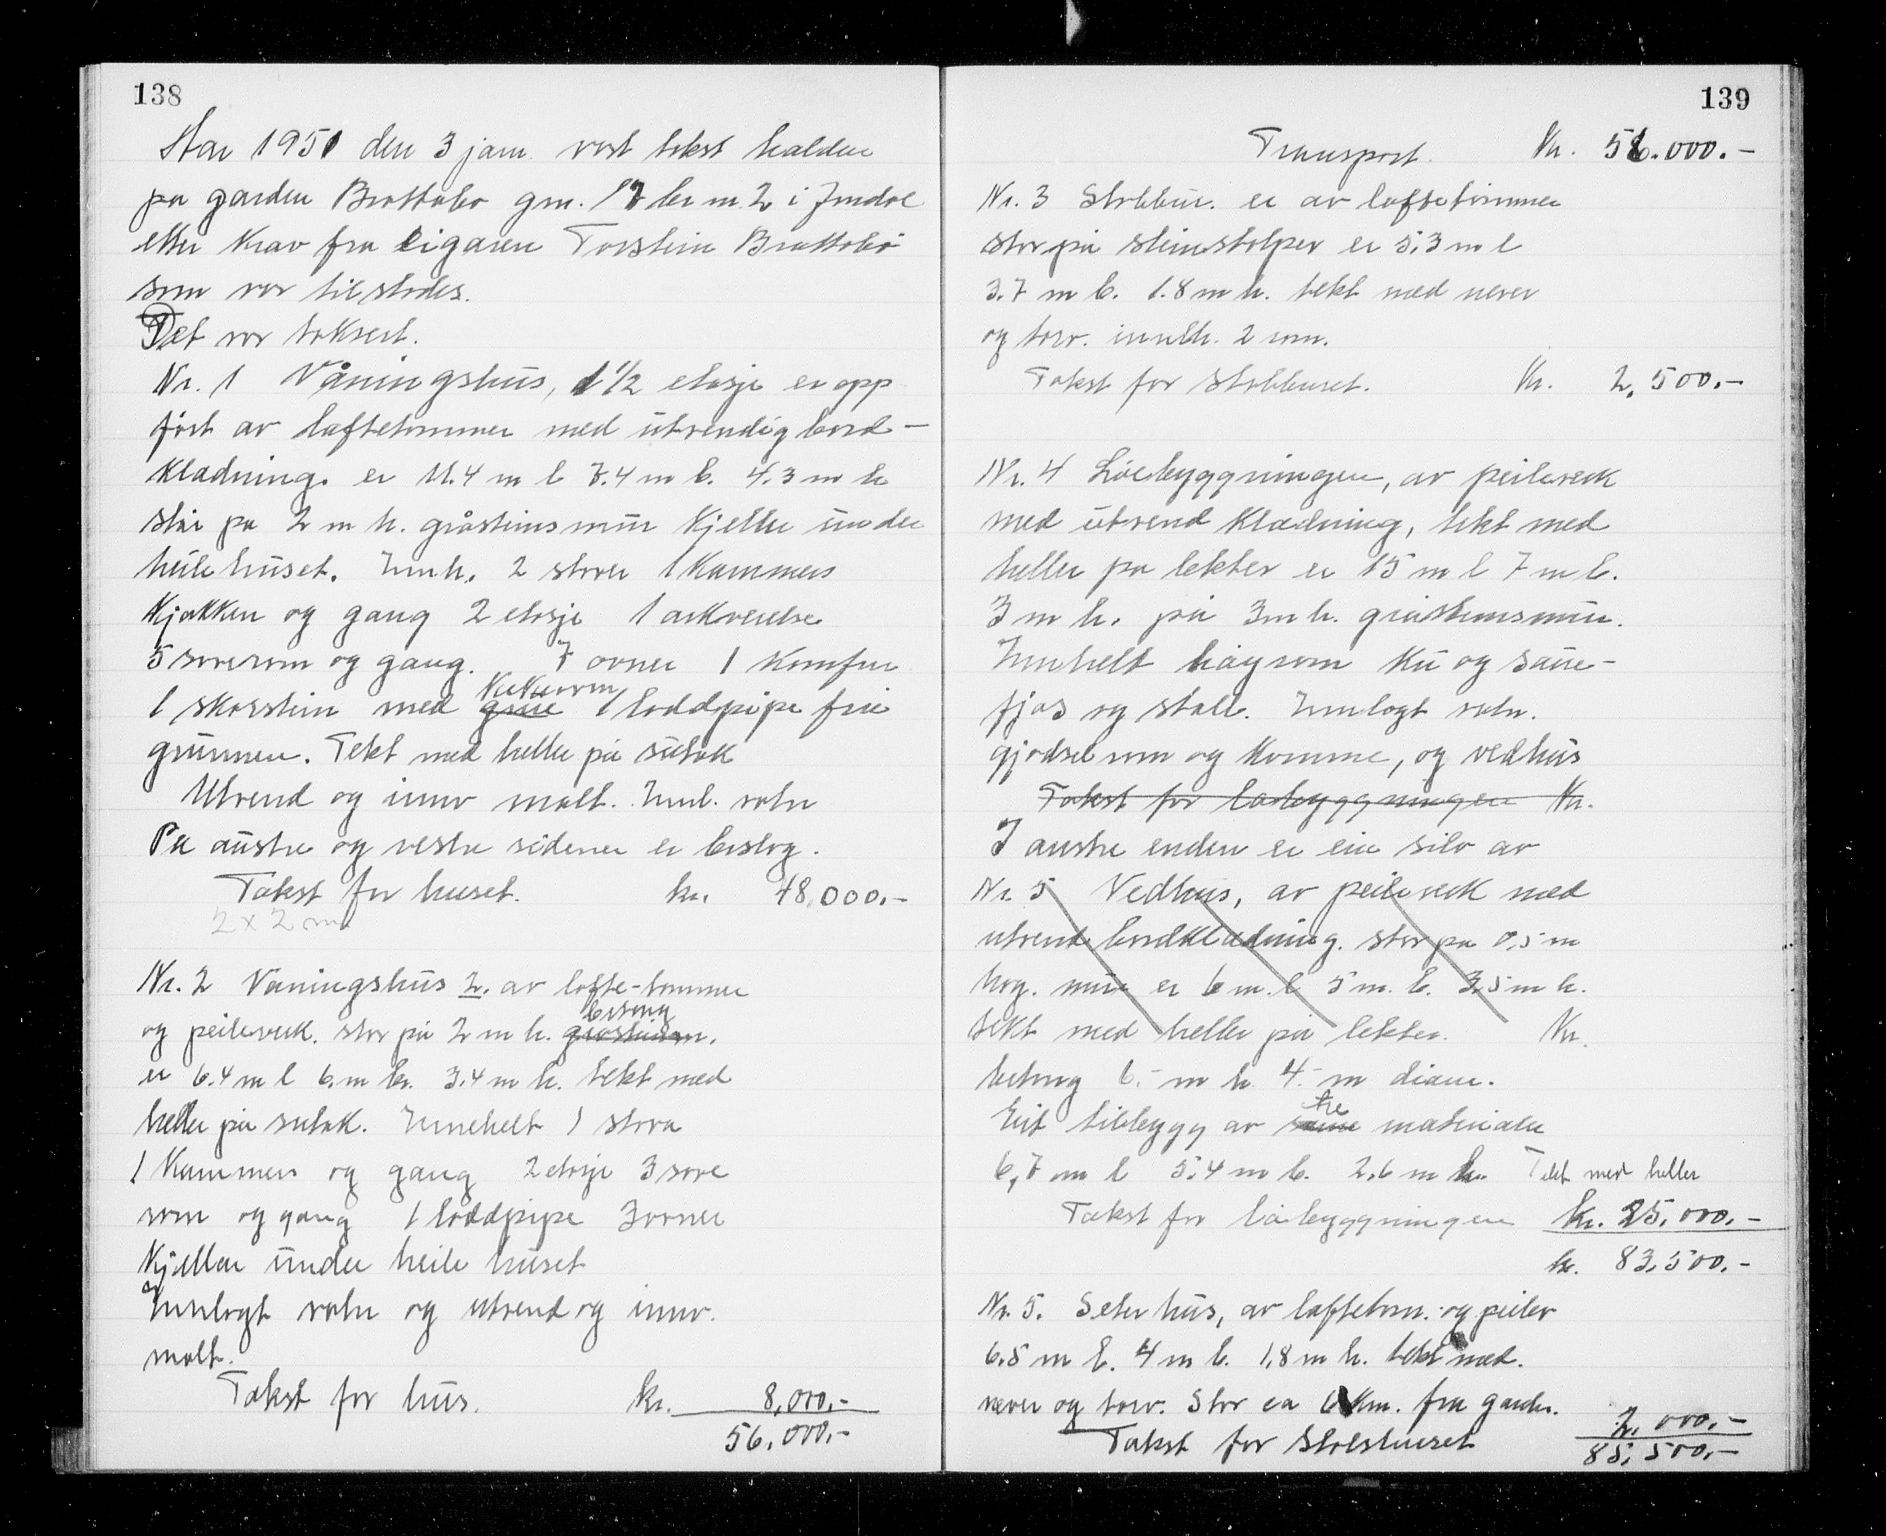 138
Aar 1951 den 3 jan. vart takst halden
på garden Brattabø gnr. 17 br nr 2 i Jondal
etter krav fra eigaren Torstein Brattabø
som var tilstades.
Det var taksert.
Nr. 1 Våningshus, 1 1/2 etasje er opp
ført av laftetømmer med utvendig bord-
kladning. er 11.4 m l 7.4 m b. 4.3 m h
står på 2 m h. gråsteinsmur kjeller under
heile huset. Innh. 2 stover 1 kammers
kjøkken og gang 2 etasje 1 arkverelse
5 soverom og gang. 7 ovner 1 komfur
1 skorstein med grue kukuovn 1 loddpipe fra
grunnen. Tekt med heller på sutak
Utvend og innv malt. Innl. vatn
På austre og vestre sidene er bislog.
Takst for huset. kr. 48,000.-
2 x 2 m
Nr. 2 Vaningshus 2. av lafte-tømmer
og peileverk. står på 2 m h. gråsteinsm. betong
er 6.4 m l 6. m br. 3.4 m h. tekt med
heller på sutak. Innehelt 1 stova
1 Kammers og gang 2 etasje 3 sove
rom og gang 1 loddpipe 3 ovner
Kjellar under heile huset
Innlagt vatn og utvend og innv.
malt.
Takst for hus. kr. 8,000.-
56,000.-
139
Transport. Kr. 56.000.-
Nr. 3 Stabbur. er av laftetømmer
står på steinstolper er 5.3 m l
3.7 m b. 1.8 m h. tekt med never
og torv. inneh. 2 rom.
Takst for stabburet. Kr. 2,500.-
Nr. 4 Løebyggningen, av peileverk
med utvend kladning, tekt med
heller på lekter er 15 m l 7 m b.
3 m h. på 3 m h. gråsteinsmur.
Innhelt høyrom ku og saue-
fjøs og stall. Innlagt vatn.
gjødsel rom og komme, og vedhus
Takst for løebyggningen Kr.
I austre enden er ein silo av
Nr. 5 Vedhus, av peileverk med
utvend bordkladning. står på 0,5 m
høg. mur er 6 m. l 5 m. b. 3,5 m h.
tekt med heller på lekter. Kr.
betong 6.- m h. 4.- m diam.
Eit tilbygg av same tre materialer
6,7 m l 5.4 m b. 2.6 m h. Tekt med heller
Takst for løebyggningen kr. 25,000.-
kr. 83,500.-
Nr. 5. Seterhus, av laftetøm. og peilev
6.5 m l. 4 m b. 1,8 m h. tekt med.
never og torv. Står ca 6 km. fra garden.
Takst for stølshuset 2,000.-
85,500.-